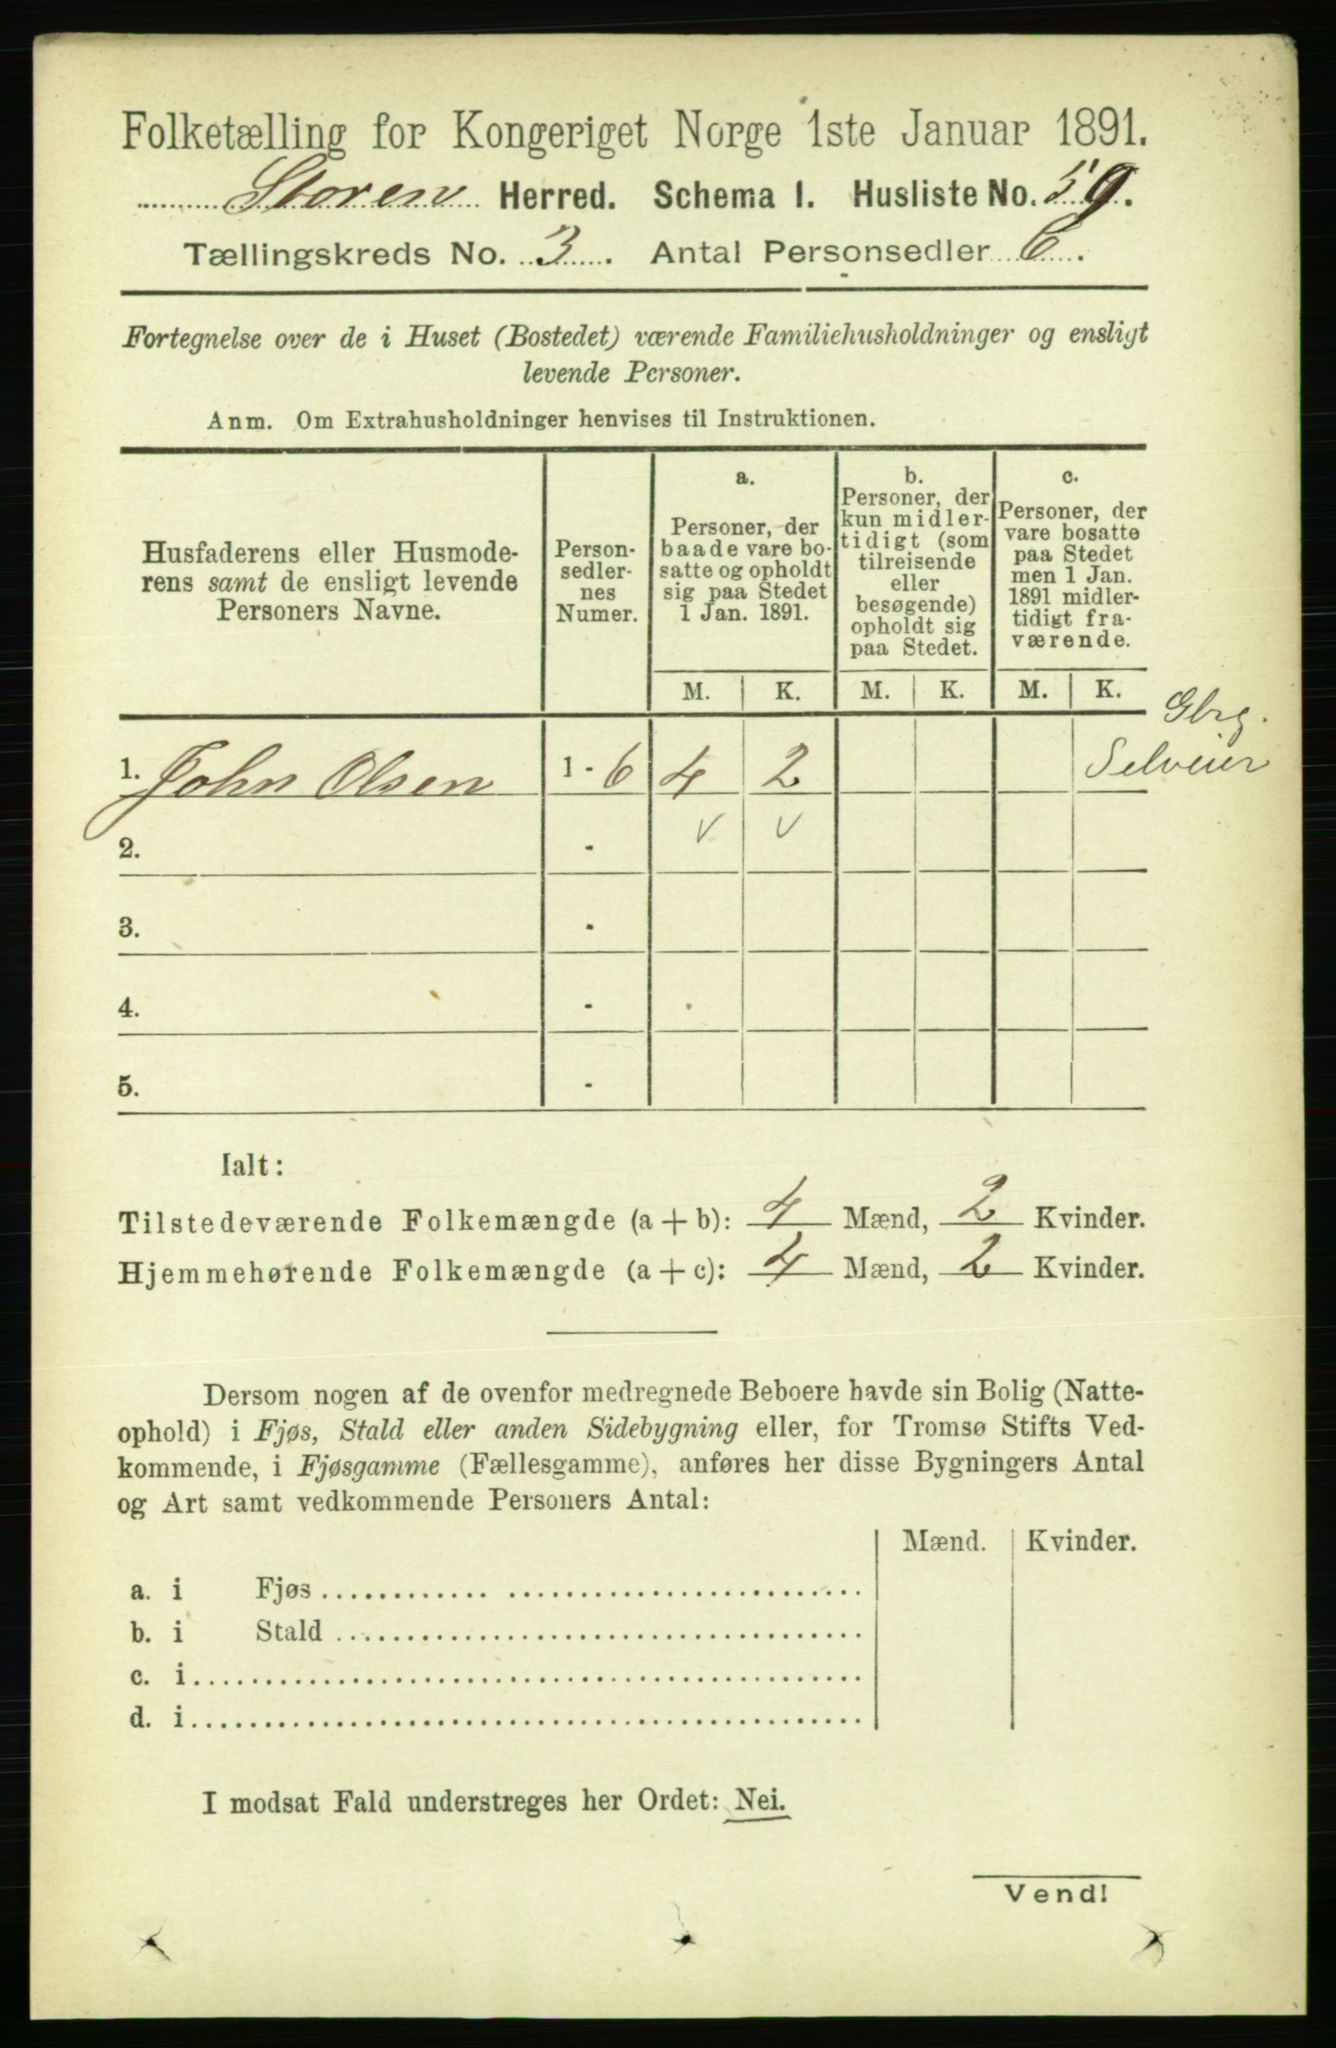 Folketælling for Kongeriget Norge 1ste Januar 1891.
Støren Herred. Schema I. Husliste No. 59.
Tællingskreds No. 3. Antal Personsedler 6.
Fortegnelse over de i Huset (Bostedet) værende Familiehusholdninger og ensligt
levende Personer.
Anm. Om Extrahusholdninger henvises til Instruktionen.
Husfaderens eller Husmode-
rens samt de ensligt levende
Personers Navne.
Person-
sedler-
nes
Numer.
a.
Personer, der
baade vare bo-
satte og opholdt
sig paa Stedet
1 Jan. 1891.
b.
Personer, der
kun midler-
tidigt (som
tilreisende
eller
besøgende)
opholdt sig
paa Stedet.
c.
Personer, der
vare bosatte
paa Stedet
men 1 Jan.
1891 midler-
tidigt fra-
værende.
M. K. M. K. M. K.
Gbrg.
Selveier
1. John Olsen 1 - 6 4 2
2. - v v
3. -
4. -
5. -
Ialt:
Tilstedeværende Folkemængde (a + b): 4 Mænd, 2 Kvinder.
Hjemmehørende Folkemængde (a + c): 4 Mænd, 2 Kvinder.
Dersom nogen af de ovenfor medregnede Beboere havde sin Bolig (Natte-
ophold) i Fjøs, Stald eller anden Sidebygning eller, for Tromsø Stifts Ved-
kommende, i Fjøsgamme (Fællesgamme), anføres her disse Bygningers Antal
og Art samt vedkommende Personers Antal:
Mænd. Kvinder.
a. i Fjøs
b. i Stald
c. i
d. i
I modsat Fald understreges her Ordet: Nei.
Vend!